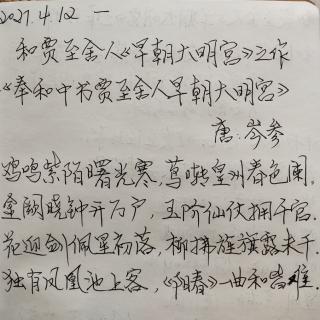 2021.4.12 一
和贾至舍人《早朝大明宫》之作
《奉和中书贾至舍人早朝大明宫》
唐:岑参
鸡鸣紫陌曙光寒,莺啭皇州春色阑.
金阙晓钟开万户,玉阶仙仗拥千官.
花迎剑佩星初落,柳拂旌旗露未干.
独有凤凰池上客,《阳春》一曲和皆难.